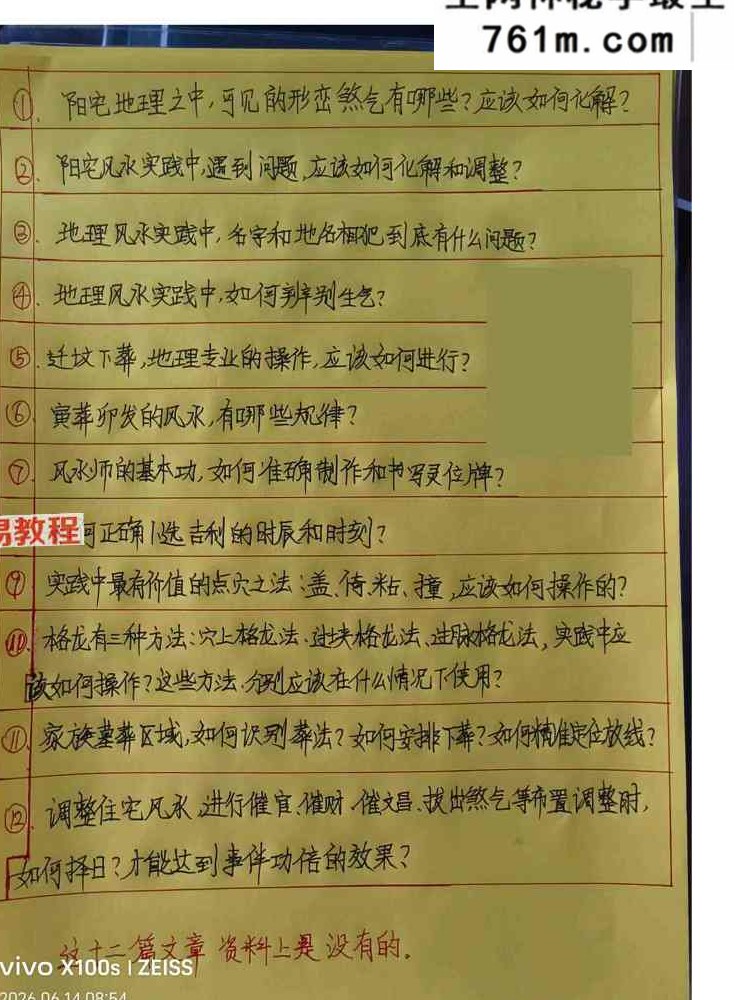 761m.com
①. 阳宅地理之中,可见的形峦煞气有哪些?应该如何化解?
②. 阳宅风水实践中,遇到问题,应该如何化解和调整?
③. 地理风水实践中,名字和地名相犯到底有什么问题?
④. 地理风水实践中,如何辨别生气?
⑤. 迁坟下葬,地理专业的操作,应该如何进行?
⑥. 寅葬卯发的风水,有哪些规律?
⑦. 风水师的基本功,如何准确制作和书写灵位牌?
易教程
何正确选吉利的时辰和时刻?
⑨. 实践中最有价值的点穴之法:盖、倚、粘、撞,应该如何操作的?
⑩. 格龙有三种方法:穴上格龙法、过块格龙法、过脉格龙法,实践中应
该如何操作?这些方法、分别应该在什么情况下使用?
⑪. 家族墓葬区域,如何识别葬法?如何安排下葬?如何精准定位放线?
⑫. 调整住宅风水,进行催官、催财、催文昌、拔出煞气等布置调整时,
如何择日?才能达到事伴功倍的效果?
这十二篇文章 资料上是没有的.
vivo X100s | ZEISS
2026.06.14 08:54